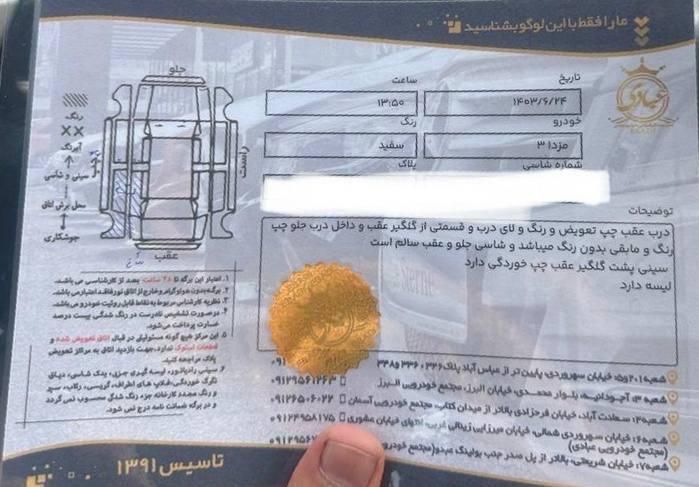 ما را فقط با این لوگو بشناسید
تاریخ
ساعت
۱۴۰۳/۶/۲۴
۱۳:۵۰
خودرو
رنگ
مزدا ۳
سفید
شماره شاسی
پلاک
توضیحات
درب عقب چپ تعویض و رنگ و لای درب و قسمتی از گلگیر عقب و داخل درب جلو چپ
رنگ و مابقی بدون رنگ میباشد و شاسی جلو و عقب سالم است
سینی پشت گلگیر عقب چپ خوردگی دارد
لیسه دارد
جلو
راست
چپ
عقب
رنگ
آبرنگ
سینی و شاسی
محل برش اتاق
جوشکاری
۱. اعتبار این برگه تا ۴۸ ساعت بعد از کارشناسی می باشد.
۲. برگه بدون هولوگرام و خارج از اتاق نور فاقد اعتبار می باشد.
۳. نظریه کارشناس مربوط به نقاط قابل رویت خودرو می باشد.
۴. در صورت تشخیص نادرست در رنگ شدگی بیست درصد
خسارت پرداخت می شود.
۵. این مرکز هیچ گونه مسئولیتی در قبال اتاق تعویض شده و
قطعات استوک ندارد، جهت بازدید اتاق به مراکز تعویض
پلاک مراجعه کنید.
۶. سینی رادیاتور، لیسه گیری جزیی، یدک شاسی، دیاق
تگرگ خوردگی، قلاب های اطراف، گریسی، رکاب، سپر
و رنگ مجدد کارخانه جزء رنگ شدگی محسوب نمی گردد
و در برگه ضمانت نامه درج نمی شود.
شعبه ۱ و ۲ و ۵: خیابان سهروردی، پایین تر از عباس آباد پلاک
شعبه ۳: آجودانیه، بلوار محمدی، خیابان البرز، مجتمع خودرویی البرز
۰۹۱۲۹۵۶۱۲۶۳
شعبه ۴: سعادت آباد، خیابان فرحزادی بالاتر از میدان کتاب، مجتمع خودرویی آسمان
۰۹۱۲۶۵۰۶۰۲۲
شعبه ۶: خیابان سهروردی شمالی، خیابان میرزایی زینالی غربی، انتهای خیابان عشوری
۰۹۱۲۴۹۵۸۱۷۵
(مجتمع خودرویی عبادی)
شعبه ۷: خیابان شریعتی، بالاتر از پل صدر جنب بولینگ عبدو (مجتمع خودرو
تاسیس ۱۳۹۱